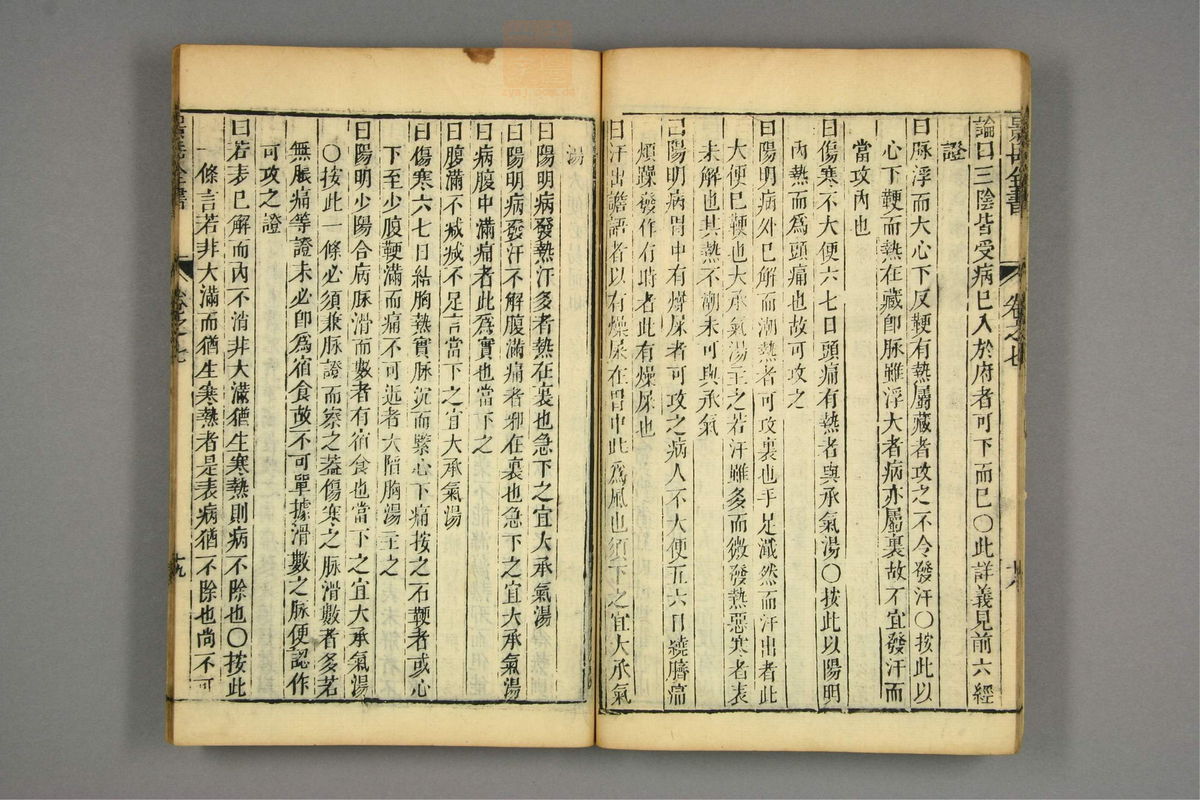 景岳全書
卷之七
十八
論曰三陰皆受病已入於府者可下而已〇此詳義見前六經
證
曰脉浮而大心下反鞕有熱屬藏者攻之不令發汗〇按此以
心下鞕而熱在藏卽脉雖浮大者病亦屬裏故不宜發汗而
當攻內也
曰傷寒不大便六七日頭痛有熱者與承氣湯〇按此以陽明
內熱而爲頭痛也故可攻之
曰陽明病外已解而潮熱者可攻裏也手足濈然而汗出者此
大便已鞕也大承氣湯主之若汗雖多而微發熱惡寒者表
未解也其熱不潮未可與承氣
曰陽明病胃中有燥屎者可攻之病人不大便五六日繞臍痛
煩躁發作有時者此有燥屎也
曰汗出譫語者以有燥屎在胃中此爲風也須下之宜大承氣
湯
曰陽明病發熱汗多者熱在裏也急下之宜大承氣湯
曰陽明病發汗不解腹滿痛者邪在裏也急下之宜大承氣湯
曰病腹中滿痛者此爲實也當下之
曰腹滿不減減不足言當下之宜大承氣湯
曰傷寒六七日結胸熱實脉沉而緊心下痛按之石鞕者或心
下至少腹鞕滿而痛不可近者大陷胸湯主之
曰陽明少陽合病脉滑而數者有宿食也當下之宜大承氣湯
〇按此一條必須兼脉證而察之蓋傷寒之脉滑數者多若
無脹痛等證未必卽爲宿食故不可單據滑數之脉便認作
可攻之證
曰若表已解而內不消非大滿猶生寒熱則病不除也〇按此
一條言若非大滿而猶生寒熱者是表病猶不除也尚不可
景岳全書
卷之七
十九